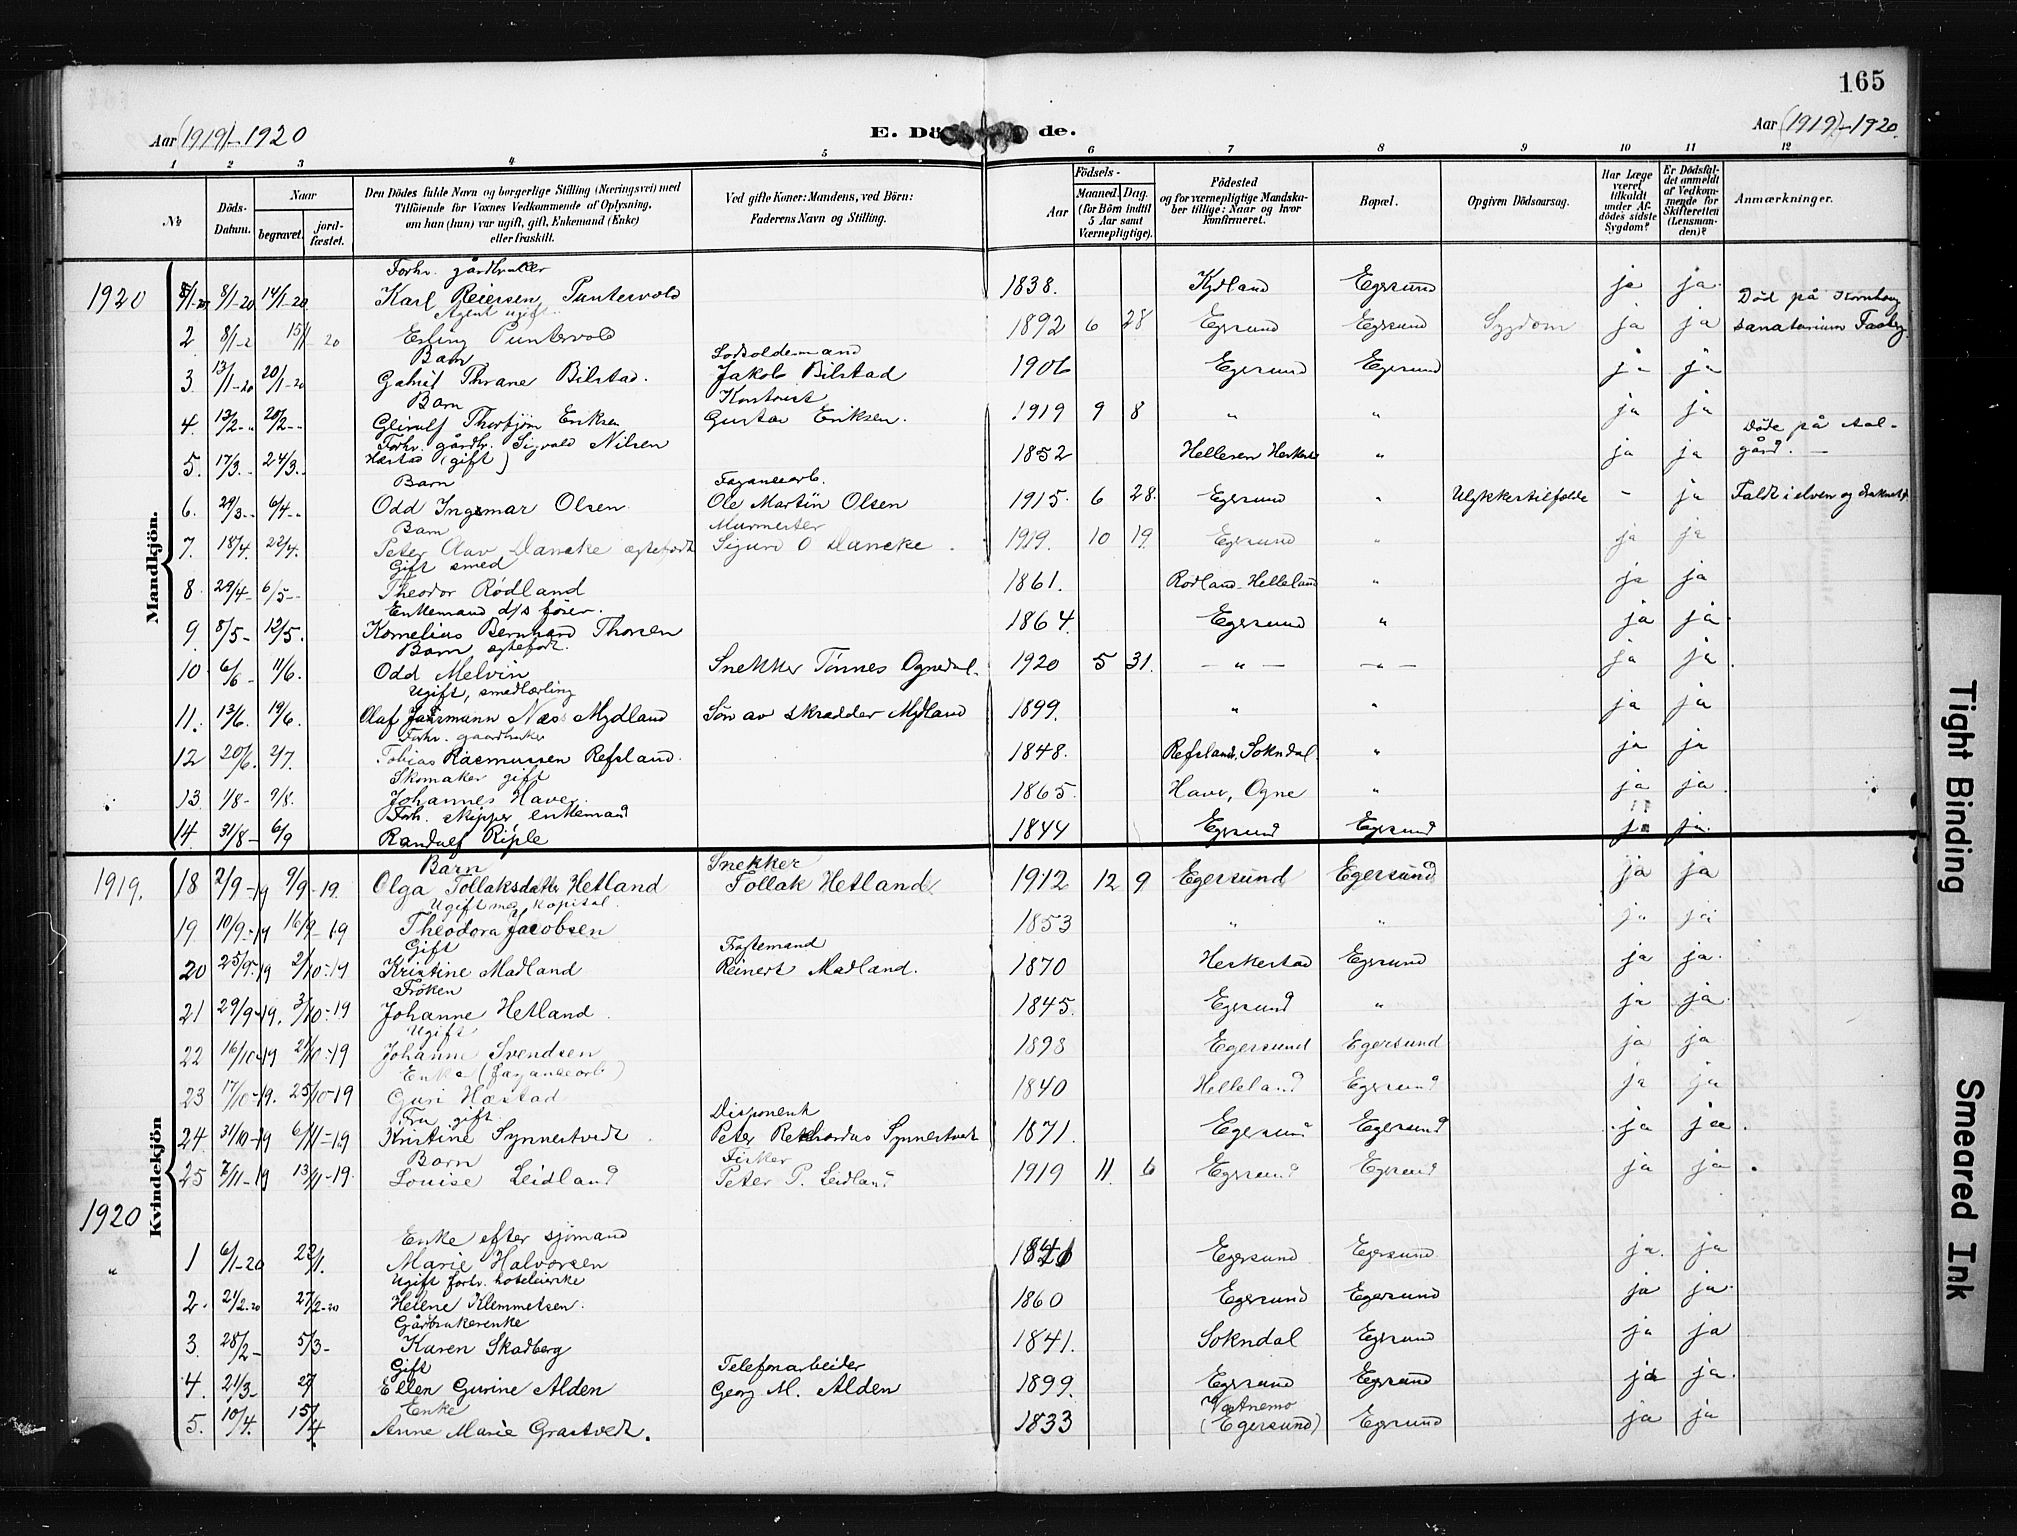 165
Aar (1919) - 1920
E. Dö de.
Aar (1919) - 1920.
1 2 3 4 5 6 7 8 9 10 11 12
№
Döds-Datum.
Naar
begravet.
jord-fæstet.
Den Dödes fulde Navn og borgerlige Stilling (Næringsvei) med
Tilföiende for Voxnes Vedkommende af Oplysning,
om han (hun) var ugift, gift, Enkemand (Enke)
eller fraskilt.
Ved gifte Koner: Mandens, ved Börn:
Faderens Navn og Stilling.
Födsels-
Aar
Maaned. Dag.
(for Börn indtil
5 Aar samt
Værnepligtige).
Födested
og for værnepligtige Mandska-
ber tillige: Naar og hvor
konfirmeret.
Bopæl.
Opgiven Dödsaarsag.
Har Læge
været
tilkaldt
under Af-
dödes sidste
Sygdom?
Er Dödsfal-
det anmeldt
af Vedkom-
mende for
Skifteretten
(Lensman-
den)?
Anmærkninger.
Mandkjön.
1920 8/1-20 14/1-20 Forhv. gårdbruker
Karl Reiersen Puntervold 1838. Kydland Egersund ja ja.
2 8/1-2 15/1 20 Agent ugift.
Erling Puntervold 1892 6 28 Egersund Egersund Sygdom ja ja Död på Kornhaug sanatorium
3 13/1-20 20/1-20 Barn
Gabriel Thrane Bilstad. Lodsoldermand
Jakob Bilstad 1906 Egersund Egersund ja ja
4. 13/2-" 20/2-- Barn
Geirulf Thorbjørn Eriksen Kontorist
Gustav Eriksen. 1919 9 8 " " ja ja
5. 17/3.- 24/3.- Forhv. gårdbr. Sigvald Nilsen
Hæstad (gift) 1852 Helleren Heskestad " ja ja Døde på Aal-
gård. —
6. 29/3-- 6/4-- Barn
Odd Ingemar Olsen Fayancearb.
Ole Martin Olsen 1915. 6 28. Egersund " Ulykkestilfælde - ja Faldt i elven og druknet
7. 18/4. 22/4. Barn
Peter Olav Dancke egtefødt Murmester
Sigurd O Dancke. 1919. 10 19. Egersund " ja ja
8. 29/4- 6/5-- Gift smed
Theodor Rødland 1861. Rødland Helleland " ja ja
9 8/5- 12/5. Enkemand d/s fører.
Kornelius Bernhard Thorsen 1864. Egersund " ja ja.
10. 6/6- 11/6. Barn egtefødt.
Odd Melvin Snekker Tønnes Ognedal. 1920 5 31. — " — — " — ja ja
11. 13/6. 19/6. Ugift, smedlærling
Olaf Jansmann Næss Mydland Søn av skrædder Mydland 1899. " " ja ja
12 20/6. 2/7. Forhv. gaardbruker
Tobias Rasmussen Refsland. 1848. Refsland, Sokndal. " ja ja
13. 1/8- 9/8. Skomaker gift
Johannes Haver. 1865. Haver, Ogne " ja ja.
14. 31/8- 6/9 Forh. skipper enkemand
Randulf Riple 1844 Egersund Egersund ja ja.
Kvindekjön
1919. 18 2/9-19 9/9-19. Barn
Olga Tollaksdatter Hetland Snekker
Tollak Hetland 1912 12 9 Egersund Egersund ja ja
19 10/9-19 16/9-19 Ugift med kapital.
Theodora Jacobsen 1853 " " ja ja
20 25/9-19 2/10-19 Gift
Kristine Madland Fragtemand
Reinert Madland. 1870 Heskestad Egersund ja ja.
21 29/9-19. 3/10-19 Frøken
Johanne Hetland 1845. Egersund " ja ja.
22 16/10-19 21/10-19 Ugift
Johanne Svendsen 1898 Egersund Egersund ja ja.
23 17/10-19. 25/10-19 Enke (fayancearb)
Guri Hæstad 1840 Helleland Egersund ja ja
24. 31/10-19 6/11-19 Fru gift.
Kristine Synnestvedt. Disponent
Peter Rekhardus Synnestvedt 1871. Egersund Egersund ja jaa.
25 7/11-19 13/11-19. Barn
Louise Leidland Fisker
Peter P. Leidland 1919 11. 6 Egersund Egersund ja ja.
1920
" 1 6/1-20 22/1. Enke efter sjømand
Marie Halvorsen Egersund Egersund ja. ja
2. 21/2-20 27/2-20 Ugift forhv. hoteleierske
Helene Klemmetsen. 1860 Egersund Egersund ja ja.
3. 28/2- 5/3- Gårbrukerenke
Karen Skadberg 1841. Sokndal Egersund ja ja
4. 21/3- 27 Gift
Ellen Gurine Alden Telefonarbeider
Georg M. Alden 1899. Egersund Egersund ja ja.
5. 10/4. 15/4. Enke
Anne Marie Grastvedt. 1833 Vatnemo
(Egersund) Egersund ja ja
Tight Binding
Smeared Ink